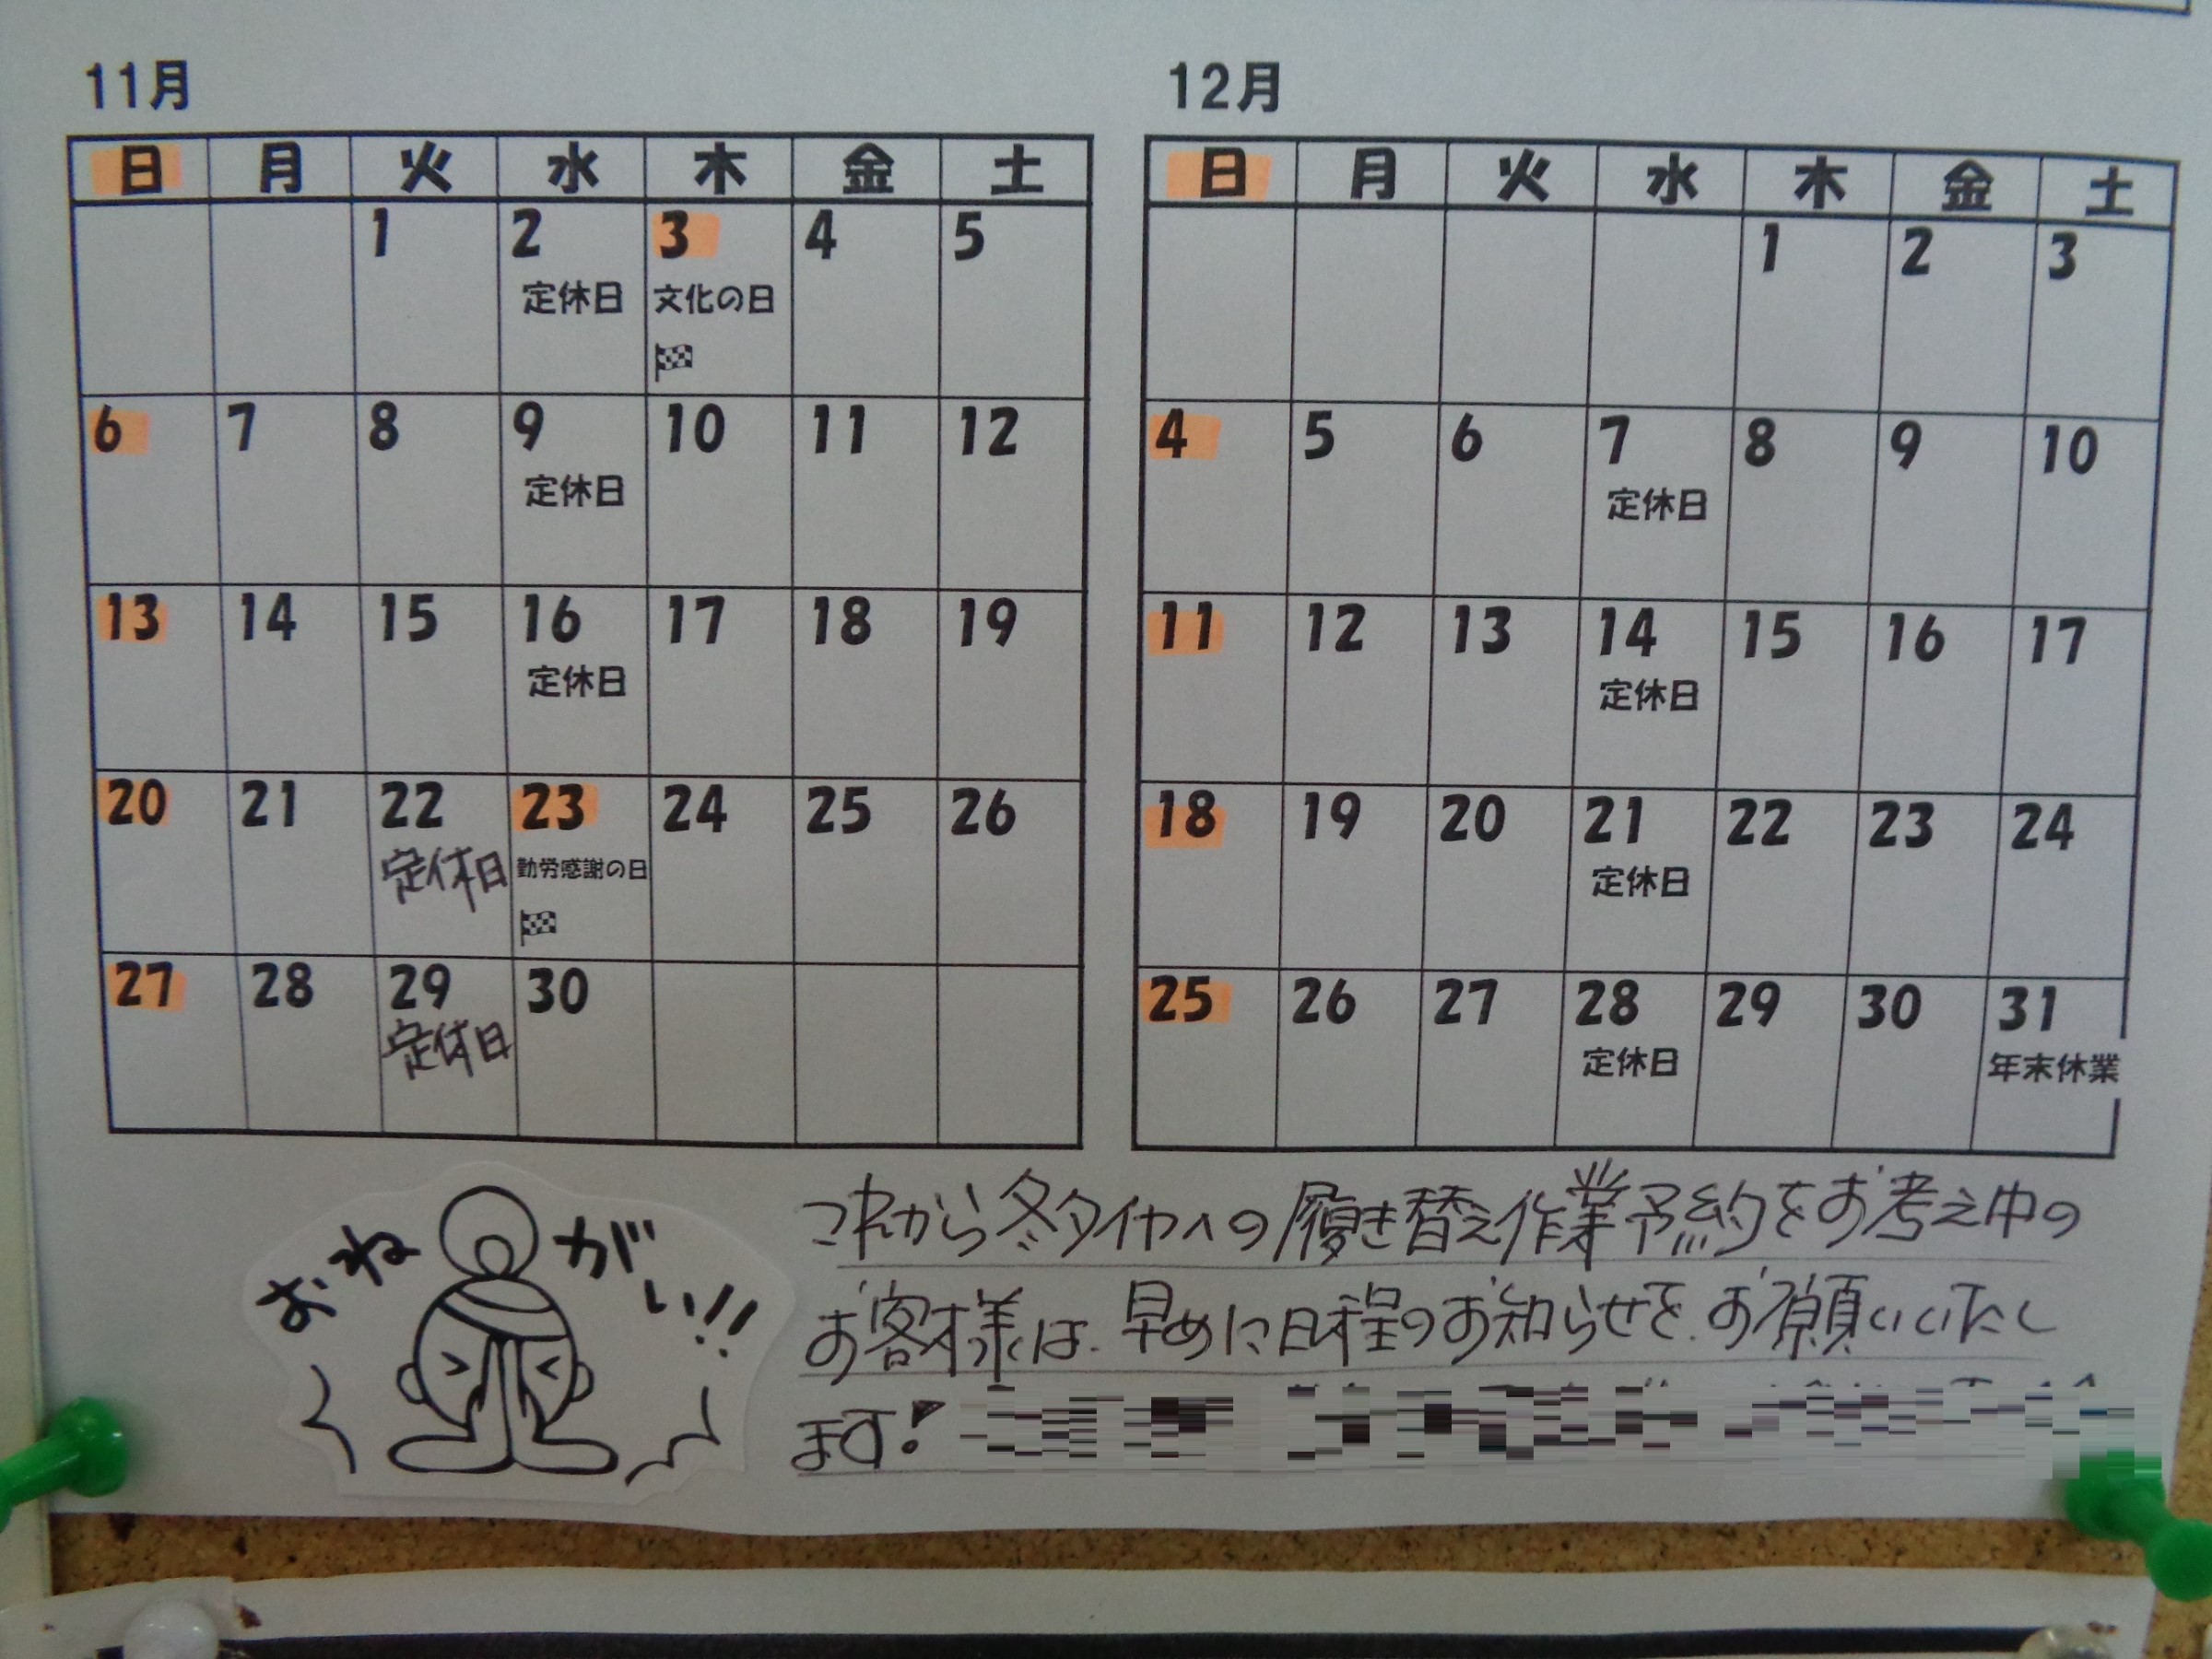 11月
日 月 火 水 木 金 土
1 2 3 4 5
定休日 文化の日
6 7 8 9 10 11 12
定休日
13 14 15 16 17 18 19
定休日
20 21 22 23 24 25 26
定休日 勤労感謝の日
27 28 29 30
定休日
12月
日 月 火 水 木 金 土
1 2 3
4 5 6 7 8 9 10
定休日
11 12 13 14 15 16 17
定休日
18 19 20 21 22 23 24
定休日
25 26 27 28 29 30 31
定休日 年末休業
おねがい!!
これから冬タイヤへの履き替え作業予約をお考え中の
お客様は、早めに日程のお知らせを、お願いいたし
ます!